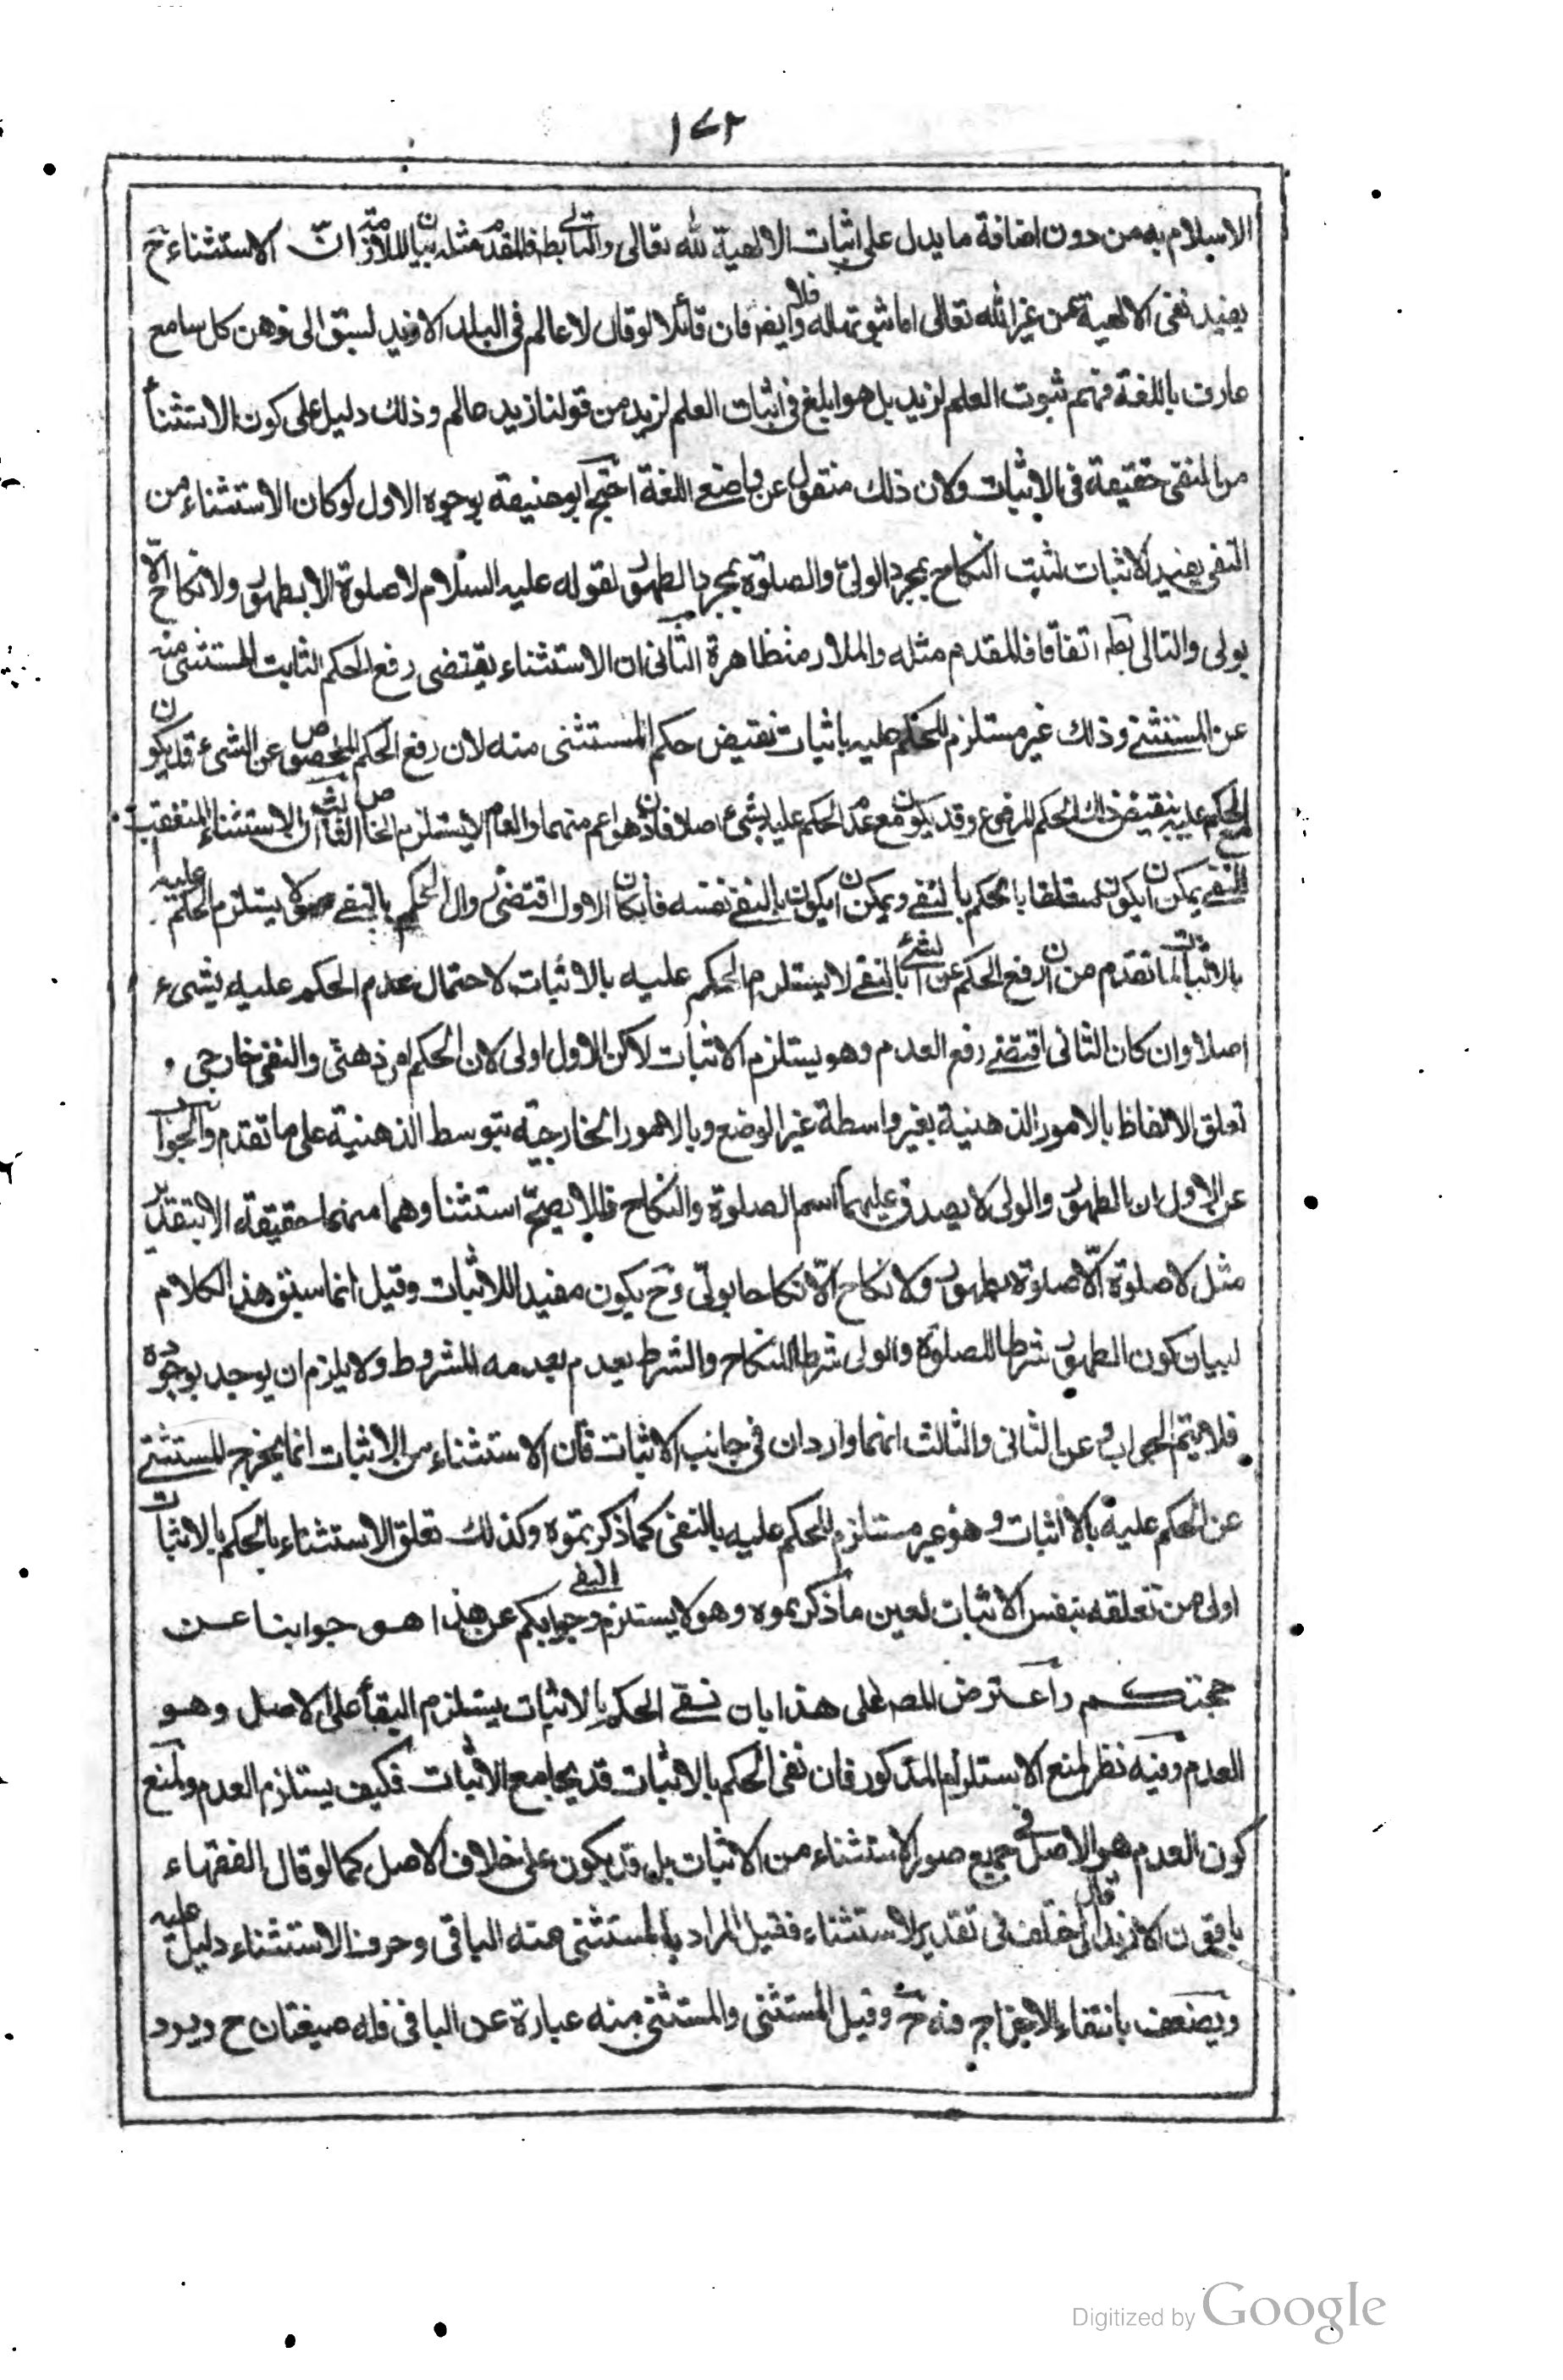 ١٧٢
الاسلام به من دون اضافة ما يدل على اثبات الالهية لله تعالى والتالى بط فالمقدم مثله بيان الملازمة انّ الاستثناء ح
يفيد نفى الالهية عن غير الله تعالى اما ثبوتها له فلا وايضا فان قائلا لو قال لا عالم فى البلد الا زيد لسبق الى ذهن كل سامع
عارف باللغة فهم ثبوت العلم لزيد بل هو ابلغ فى اثبات العلم لزيد من قولنا زيد عالم وذلك دليل على كون الاستثناء
من النفى حقيقة فى الاثبات وكان ذلك منقول عن واضع اللغة احتج ابو حنيفة بوجوه الاول لو كان الاستثناء من
النفى يفيد الاثبات لثبت النكاح بمجرد الولىّ والصلوة بمجرد الطهور لقوله عليه السلام لا صلوة الا بطهور ولا نكاح الّا
بولى والتالى بط اتفاقا فالمقدم مثله والملازمة ظاهرة الثانى ان الاستثناء يقتضى رفع الحكم الثابت للمستثنى منه
عن المستثنى وذلك غير مستلزم للحكم عليه باثبات نقيض حكم المستثنى منه لان رفع الحكم المخصوص عن الشىء قد يكون
مع الحكم عليه بنقيض ذلك الحكم المرفوع وقد يكون مع عدم الحكم عليه بشىء اصلا فاذن هو اعم منهما والعام لا يستلزم الخاص الثالث ان الاستثناء المتعقب
للنفى يمكن ان يكون متعلقا بالحكم بالنفى ويمكن ان يكون بالنفى نفسه فان كان الاول اقتضى زوال الحكم بالنفى وهو لا يستلزم الحكم عليه
بالاثبات لما تقدم من ان رفع الحكم عن الشىء بالنفى لا يستلزم الحكم عليه بالاثبات لاحتمال عدم الحكم عليه بشىء
اصلا وان كان الثانى اقتضى رفع العدم وهو يستلزم الاثبات لاكن الاول اولى لان الحكم امر ذهنى والنفى خارجى و
تعلق الالفاظ بالامور الذهنية بغير واسطة غير الوضع وبالامور الخارجية بتوسط الذهنية على ما تقدم والجواب
عن الاول ان الطهور والولى لا يصدق عليهما اسم الصلوة والنكاح فلا يصحّ استثناوهما منهما حقيقة الا بتقدير
مثل لا صلوة الّا صلوة بطهور ولا نكاح الّا نكاحا بولىّ وح يكون مفيدا للاثبات وقيل انما سيق هذا الكلام
لبيان كون الطهور شرطا للصلوة والولى شرطا للنكاح والشرط يعدم بعدمه المشروط ولا يلزم ان يوجد بوجوده
فلا يتم الجواب وعن الثانى والثالث انهما واردان فى جانب الاثبات فان الاستثناء من الاثبات انما يخرج المستثنى
عن الحكم عليه بالاثبات وهو غير مستلزم للحكم عليه بالنفى كما ذكرتموه وكذلك تعلق الاستثناء بالحكم بالاثبات
اولى من تعلقه بنفس الاثبات لعين ما ذكرتموه وهو لا يستلزم النفى وجوابكم عن هذا هو جوابنا عن
حجتكم واعترض المصـ على هذا بان نفى الحكم بالاثبات يستلزم البقاء على الاصل وهو
العدم وفيه نظر لمنع الاستلزام المذكور فان نفى الحكم بالاثبات قد يجامع الاثبات فكيف يستلزم العدم ولمنع
كون العدم هو الاصل فى جميع صور الاستثناء من الاثبات بل قد يكون على خلاف الاصل كما لو قال الفقهاء
باقون الا زيدا قال اختلف فى تقدير الاستثناء فقيل المراد بالمستثنى منه الباقى وحرف الاستثناء دليل عليه
ويضعف بانتفاء الاخراج منه ح وقيل المستثنى والمستثنى منه عبارة عن الباقى فله صيغتان ح ويرد
Digitized by Google